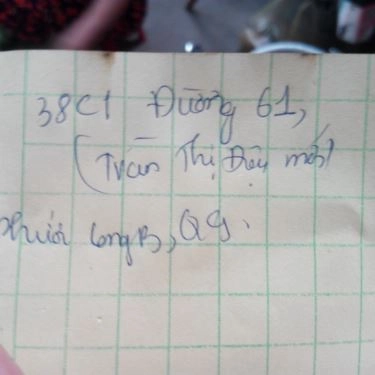 38C1 Đường 61,
(Trần Thị Điệu mới)
Phước Long B, Q9.